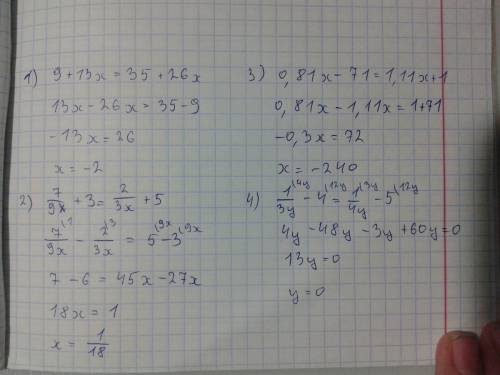 1) 9+13x=35+26x
13x-26x=35-9
-13x=26
x=-2
2) 7/9x + 3 = 2/3x + 5
7/9x (1 - 2/3x (3 = 5 (9x - 3 (9x
7-6=45x-27x
18x=1
x=1/18
3) 0,81x-71=1,11x+1
0,81x-1,11x=1+71
-0,3x=72
x=-240
4) 1/3y (4y - 4 (12y = 1/4y (3y - 5 (12y
4y-48y-3y+60y=0
13y=0
y=0